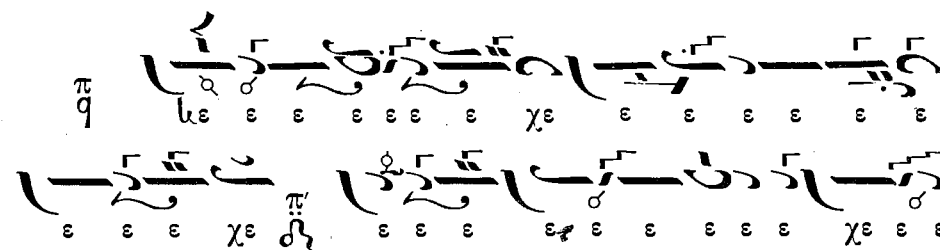 π q kε ε ε ε ε ε ε χε ε ε ε ε ε ε
ε ε ε χε π' ε ε ε ε ε ε ε ε ε χε ε ε